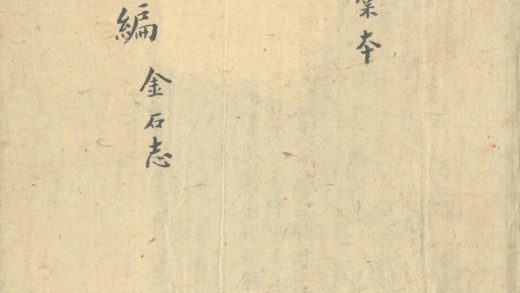 本
編 金石志